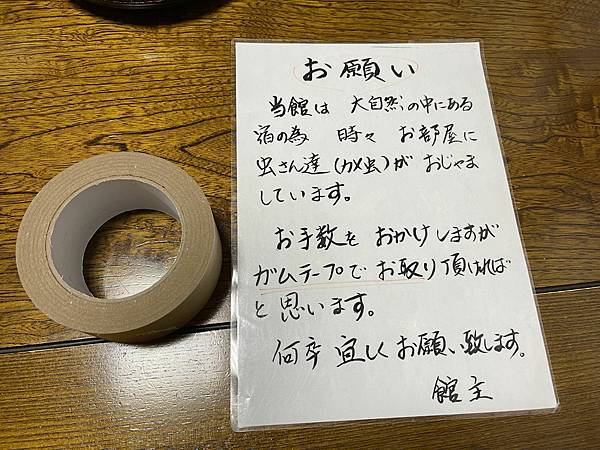 お願い
当館は 大自然の中にある
宿の為 時々 お部屋に
虫さん達(カメ虫)が おじゃま
しています。
お手数を おかけしますが
ガムテープで お取り頂ければ
と思います。
何卒 宜しくお願い致します。
館主